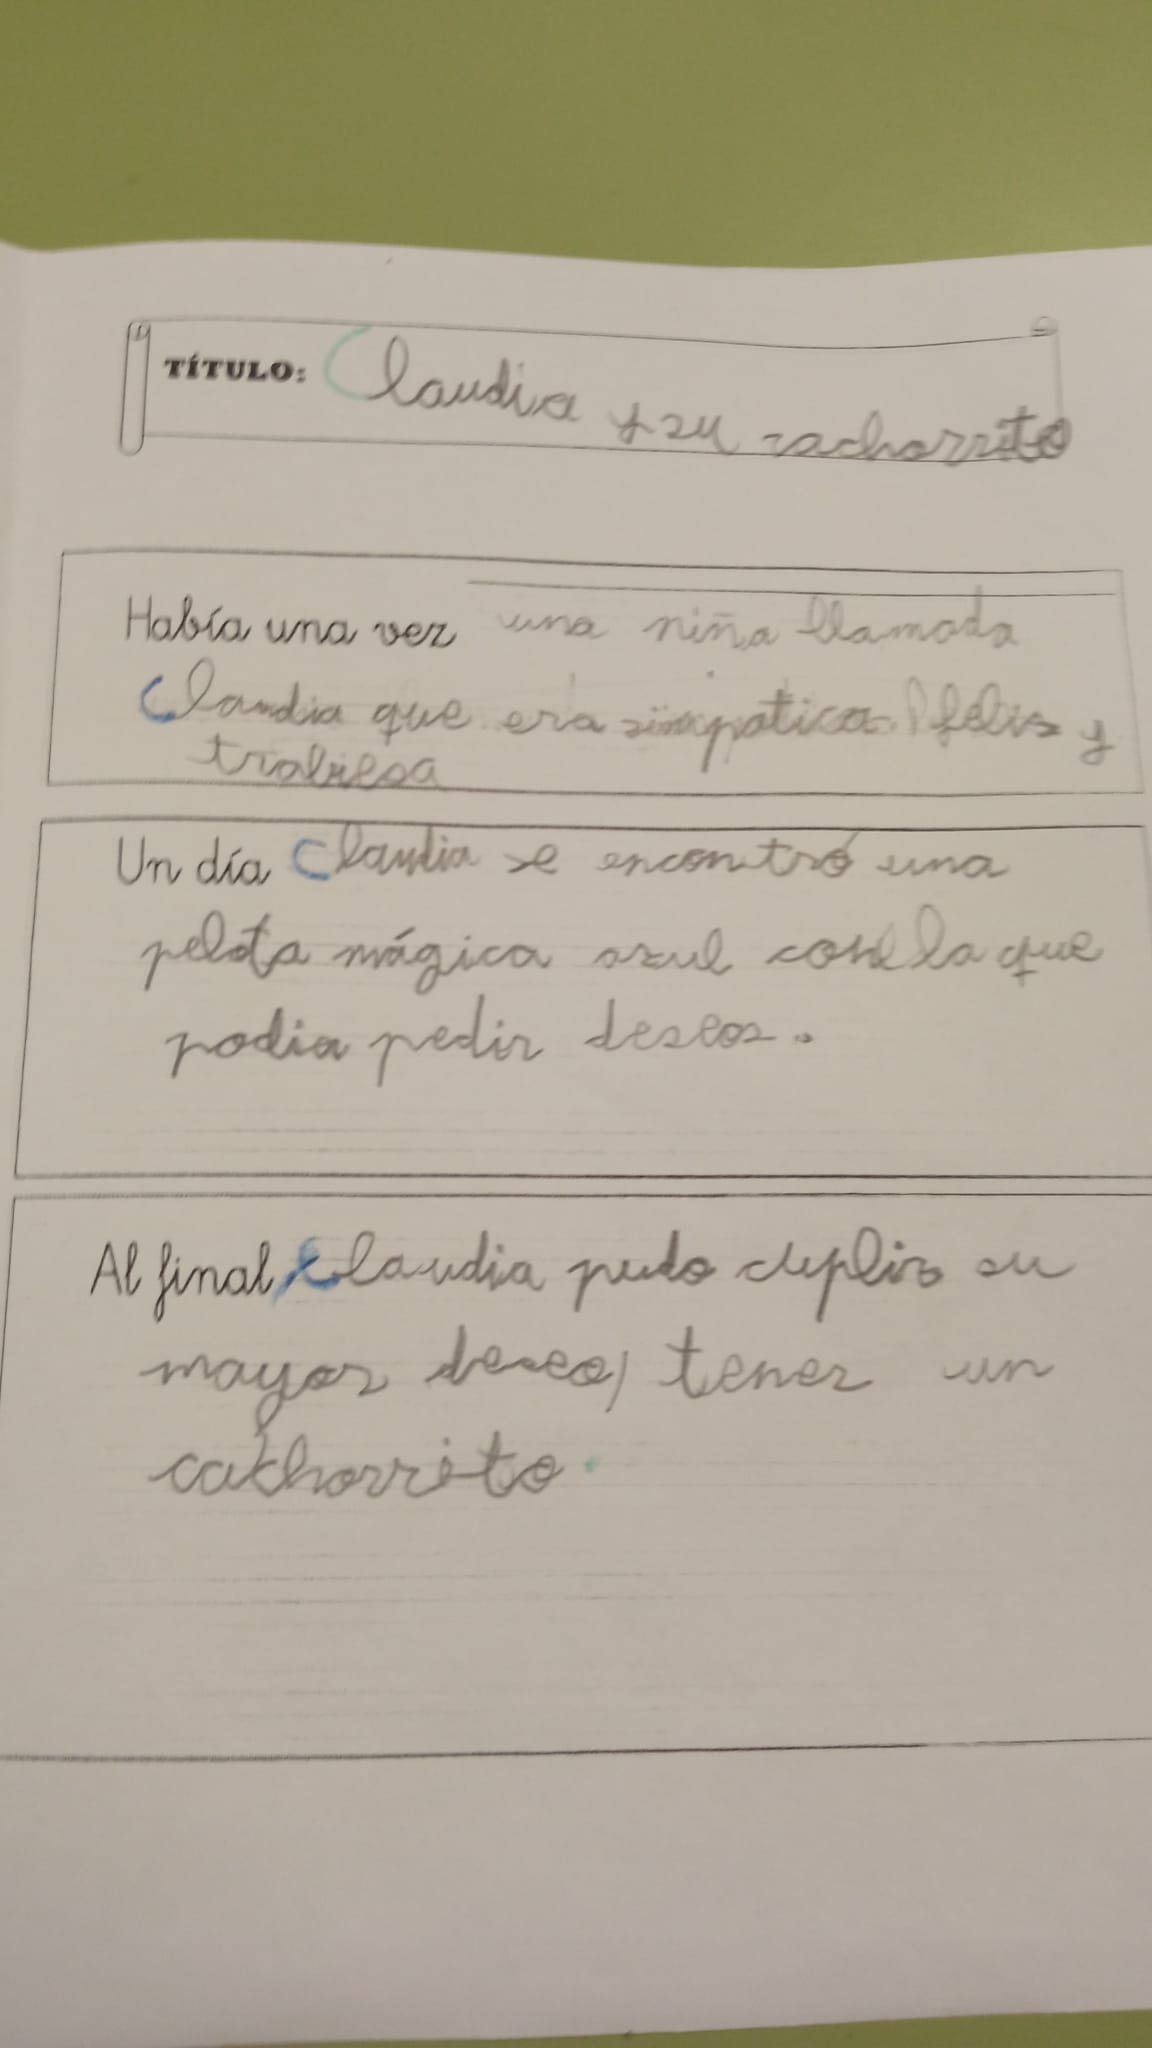 TÍTULO: Claudia y su cachorrito
Había una vez una niña llamada
Claudia que era simpatica felis y
trabiesa
Un día Claudia se encontró una
pelota mágica azul con la que
podia pedir deseos.
Al final, Claudia pudo cuplir su
mayor deseo, tener un
cachorrito.